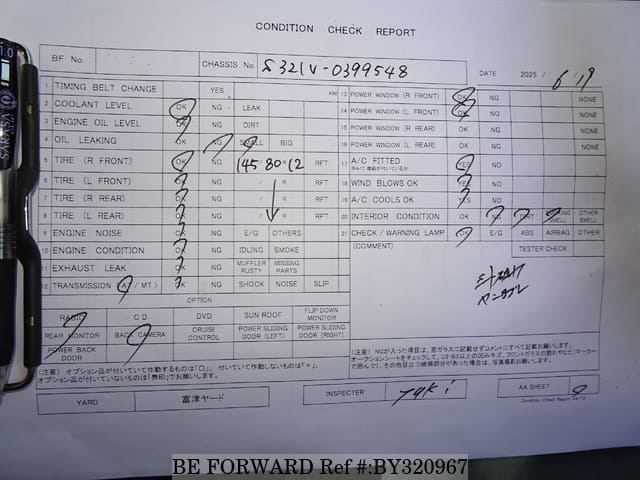 CONDITION CHECK REPORT
BF No. CHASSIS No. S321V-0399548 DATE 2025/ 6/19
1 TIMING BELT CHANGE YES KM
2 COOLANT LEVEL OK NG LEAK
3 ENGINE OIL LEVEL OK NG DIRT
4 OIL LEAKING OK NG SMALL BIG
5 TIRE (R FRONT) OK NG 145 80 12 RFT
6 TIRE (L FRONT) OK NG / R RFT
7 TIRE (R REAR) OK NG / R RFT
8 TIRE (L REAR) OK NG / R RFT
9 ENGINE NOISE OK NG E/G OTHERS
10 ENGINE CONDITION OK NG IDLING SMOKE
11 EXHAUST LEAK OK NG MUFFLER RUSTY MISSING PARTS
12 TRANSMISSION (AT / MT) OK NG SHOCK NOISE SLIP
13 POWER WINDOW (R FRONT) OK NG NONE
14 POWER WINDOW (L FRONT) OK NG NONE
15 POWER WINDOW (R REAR) OK NG NONE
16 POWER WINDOW (L REAR) OK NG NONE
17 A/C FITTED YES NO
※A/C 機能が付いているか
18 WIND BLOWS OK YES NO
19 A/C COOLS OK YES NO
20 INTERIOR CONDITION OK NG DIRT SMOKING SMELL OTHER SMELL
21 CHECK / WARNING LAMP OK E/G ABS AIRBAG OTHER
(COMMENT) TESTER CHECK
OPTION
RADIO CD DVD SUN ROOF FLIP DOWN MONITOR
REAR MONITOR BACK CAMERA CRUISE CONTROL POWER SLIDING DOOR (LEFT) POWER SLIDING DOOR (RIGHT)
POWER BACK DOOR
(注意) オプション品が付いていて作動するものは「○」、付いていて作動しないものは「×」、
オプション品が付いていないものは「無印」でお願いします。
(注意) NGが入った項目は、窓ガラスに記載せずコメントにすべて記載お願いします。
YARD 富津ヤード INSPECTER Taki AA SHEET
Condition Check Report Ver
BE FORWARD Ref #:BY320967
SAKURA